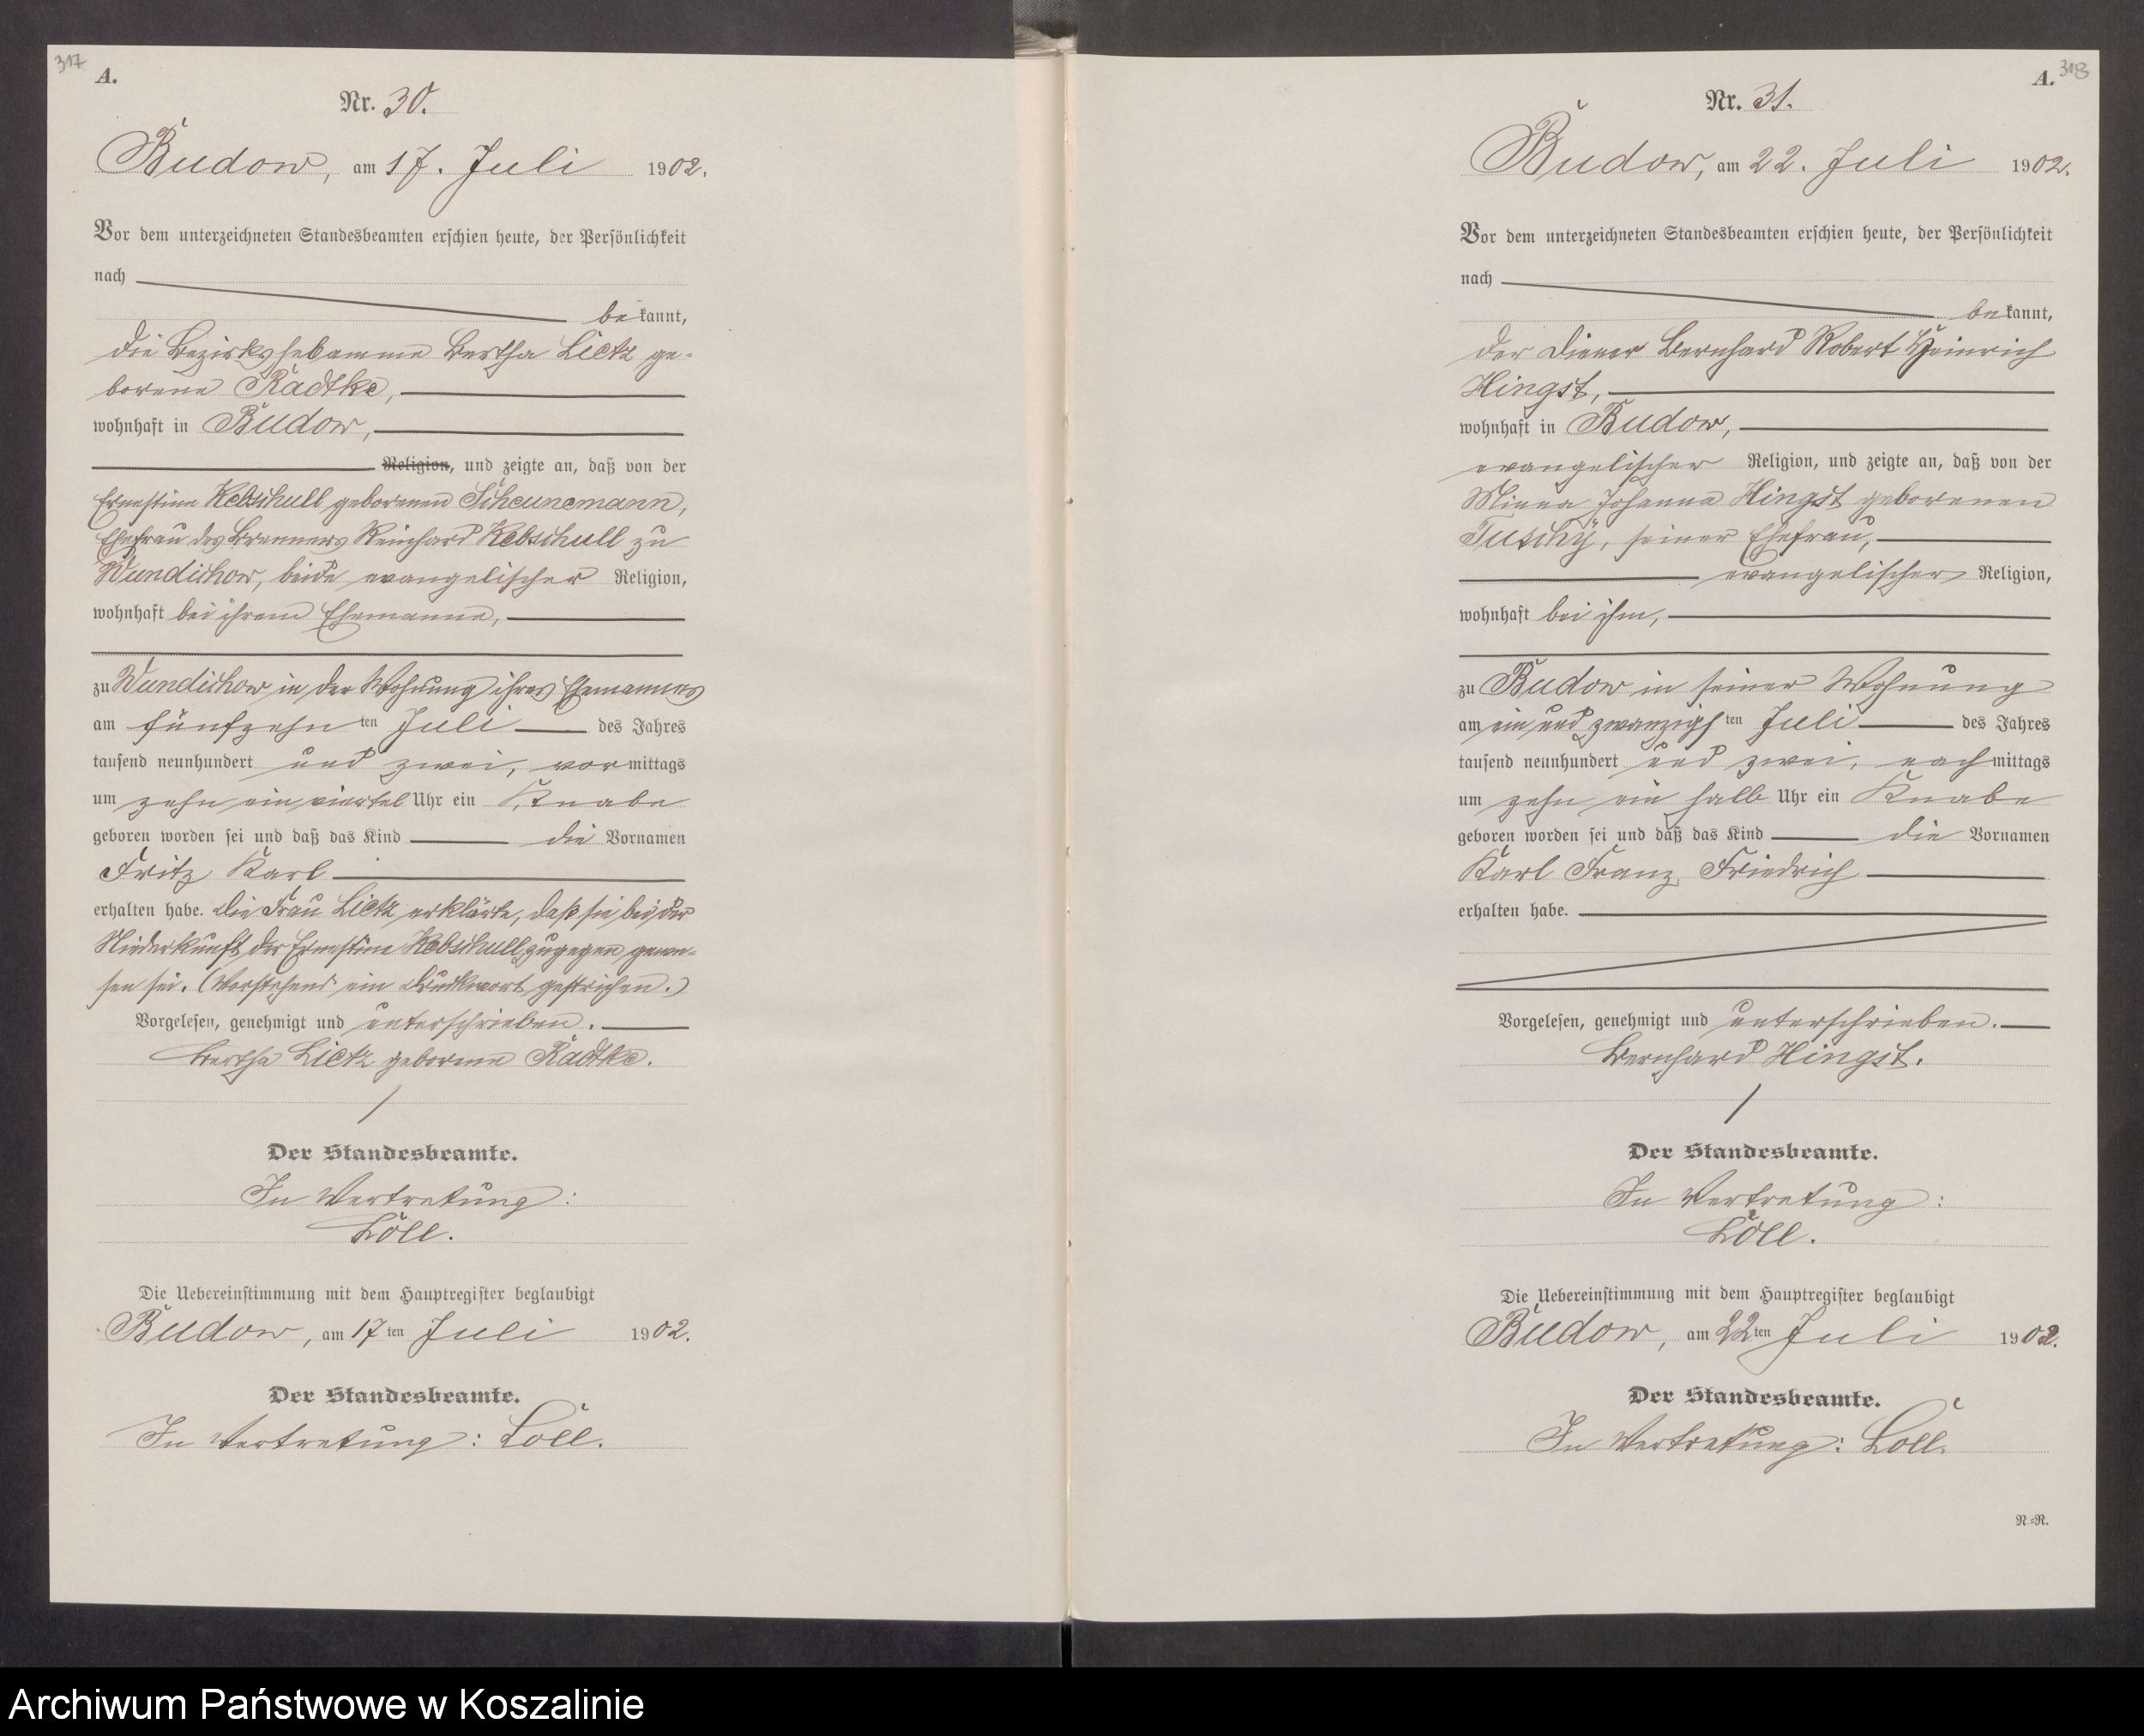 317
A.
Nr. 30.
Budow, am 17. Juli 1902.
Vor dem unterzeichneten Standesbeamten erschien heute, der Persönlichkeit
nach
bekannt,
die Bezirkshebamme Bertha Lietz ge-
borene Radtke,
wohnhaft in Budow,
Religion, und zeigte an, daß von der
Ernestine Kebschull geborenen Scheunemann,
Ehefrau des Brenners Reinhard Kebschull zu
Wundichow, beide evangelischer Religion,
wohnhaft bei ihrem Ehemanne,
zu Wundichow in der Wohnung ihres Ehemannes
am fünfzehn ten Juli des Jahres
tausend neunhundert und zwei, vormittags
um zehn ein viertel Uhr ein Knabe
geboren worden sei und daß das Kind die Vornamen
Fritz Karl
erhalten habe. Die Frau Lietz erklärte, daß sie bei der
Niederkunft der Ernestine Kebschull zugegen gewe-
sen sei. (Vorstehend ein Druckwort gestrichen.)
Vorgelesen, genehmigt und unterschrieben.
Bertha Lietz geborene Radtke.
Der Standesbeamte.
In Vertretung:
Löll.
Die Uebereinstimmung mit dem Hauptregister beglaubigt
Budow, am 17ten Juli 1902.
Der Standesbeamte.
In Vertretung: Löll.
318
A.
Nr. 31.
Budow, am 22. Juli 1902.
Vor dem unterzeichneten Standesbeamten erschien heute, der Persönlichkeit
nach
bekannt,
der Diener Bernhard Robert Heinrich
Hingst,
wohnhaft in Budow,
evangelischer Religion, und zeigte an, daß von der
Minna Johanna Hingst geborenen
Tuschy, seiner Ehefrau,
evangelischer Religion,
wohnhaft bei ihm,
zu Budow in seiner Wohnung
am ein und zwanzigsten Juli des Jahres
tausend neunhundert und zwei, nachmittags
um zehn ein halb Uhr ein Knabe
geboren worden sei und daß das Kind die Vornamen
Karl Franz Friedrich
erhalten habe.
Vorgelesen, genehmigt und unterschrieben.
Bernhard Hingst.
Der Standesbeamte.
In Vertretung:
Löll.
Die Uebereinstimmung mit dem Hauptregister beglaubigt
Budow, am 22ten Juli 1902.
Der Standesbeamte.
In Vertretung: Löll.
N.-R.
Archiwum Państwowe w Koszalinie